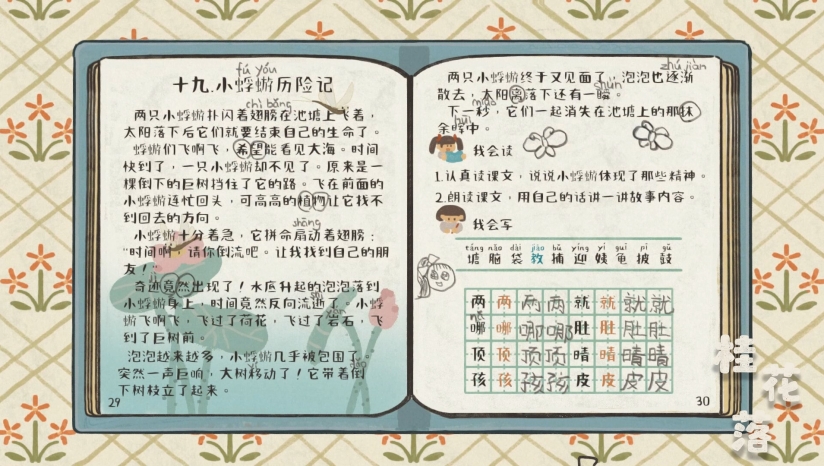 fú yóu
十九.小蜉蝣历险记
chì bǎng
两只小蜉蝣扑闪着翅膀在池塘上飞着，
太阳落下后它们就要结束自己的生命了。
蜉蝣们飞啊飞，希望能看见大海。时间
快到了，一只小蜉蝣却不见了。原来是一
棵倒下的巨树挡住了它的路。飞在前面的
小蜉蝣连忙回头，可高高的植物让它找不
到回去的方向。
shāng
小蜉蝣十分着急，它拼命扇动着翅膀：
“时间啊，请你倒流吧。让我找到自己的朋
友！”
jì
奇迹竟然出现了！水底升起的泡泡落到
小蜉蝣身上，时间竟然反向流逝了。小蜉
shì
蝣飞啊飞，飞过了荷花，飞过了岩石，飞
yán
到了巨树前。
泡泡越来越多，小蜉蝣几乎被包围了。
突然一声巨响，大树移动了！它带着倒
dǎo
下树枝立了起来。
29
zhú jiàn
两只小蜉蝣终于又见面了，泡泡也逐渐
shùn
散去，太阳离落下还有一瞬。
miǎo
下一秒，它们一起消失在池塘上的那抹
huī
余晖中。
我会读
1.认真读课文，说说小蜉蝣体现了那些精神。
2.朗读课文，用自己的话讲一讲故事内容。
我会写
táng nǎo dài jiào bǔ yíng yí guī pī gǔ
塘 脑 袋 教 捕 迎 姨 龟 披 鼓
两 两 两 两 就 就 就 就
nǎ
哪 哪 哪 哪 肚 肚 肚 肚
顶 顶 顶 顶 晴 晴 晴 晴
孩 孩 孩 孩 皮 皮 皮 皮
30
桂花落